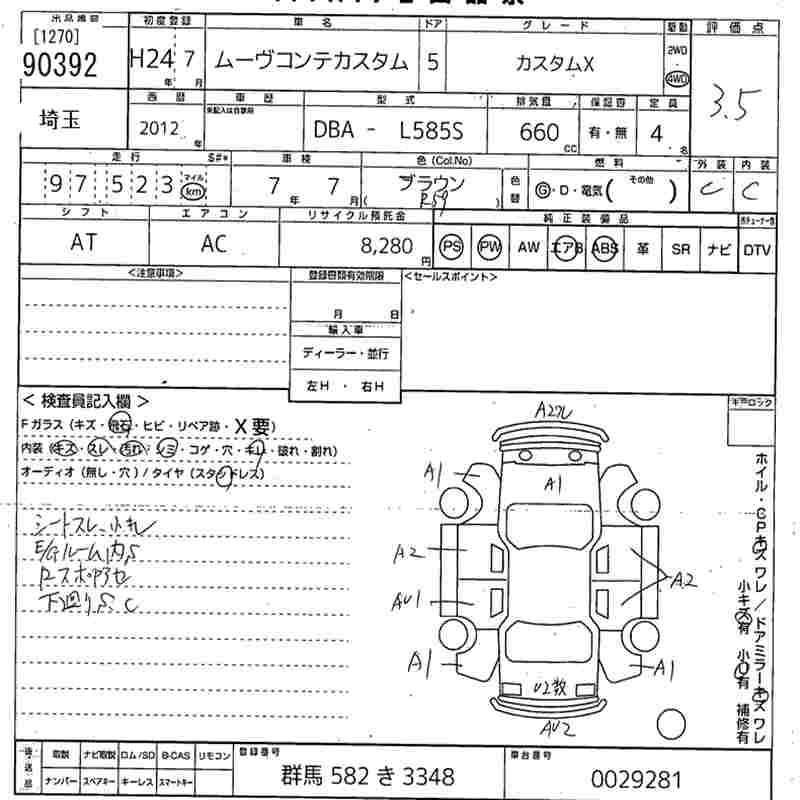 [1270]
90392
初度登録
H24 7
年 月
車名
ムーヴコンテカスタム
ドア
5
グレード
カスタムX
駆動
2WD
4WD
評価点
3.5
埼玉
西暦
2012
年
車歴
型式
DBA - L585S
排気量
660
CC
保証書
有・無
定員
4
名
走行 S#*
97523 マイル km
車検
7 7
年 月
色(Col.No)
ブラウン
( R59 )
色替
燃料
G・D・電気( その他 )
外装
C
内装
C
シフト
AT
エアコン
AC
リサイクル預託金
8,280
円
純正装備品
PS PW AW エアB ABS 革 SR ナビ
DTV
<注意事項>
登録書類有効期限
月 日
輸入車
ディーラー・並行
左H・右H
<セールスポイント>
キーロック
<検査員記入欄>
Fガラス(キズ・飛石・ヒビ・リペア跡・X要)
内装(キズ・スレ・汚れ・シミ・コゲ・穴・キレ・破れ・割れ)
オーディオ(無し・穴)/タイヤ(スタッドレス)
シートスレ、小キレ
E/Gルーム内S
下廻りS.C
A2ワレ
A1
A1
A2
AU1
A1
A2
A1
U2数
AU2
ホイル・CPキズワレ/ドアミラーキズワレ
小キズ有 小U有 補修有
後送品
取説 ナビ取説 ロム/SD B-CAS リモコン
ナンバー スペアキー キーレス スマートキー
登録番号
群馬 582 き 3348
車台番号
0029281